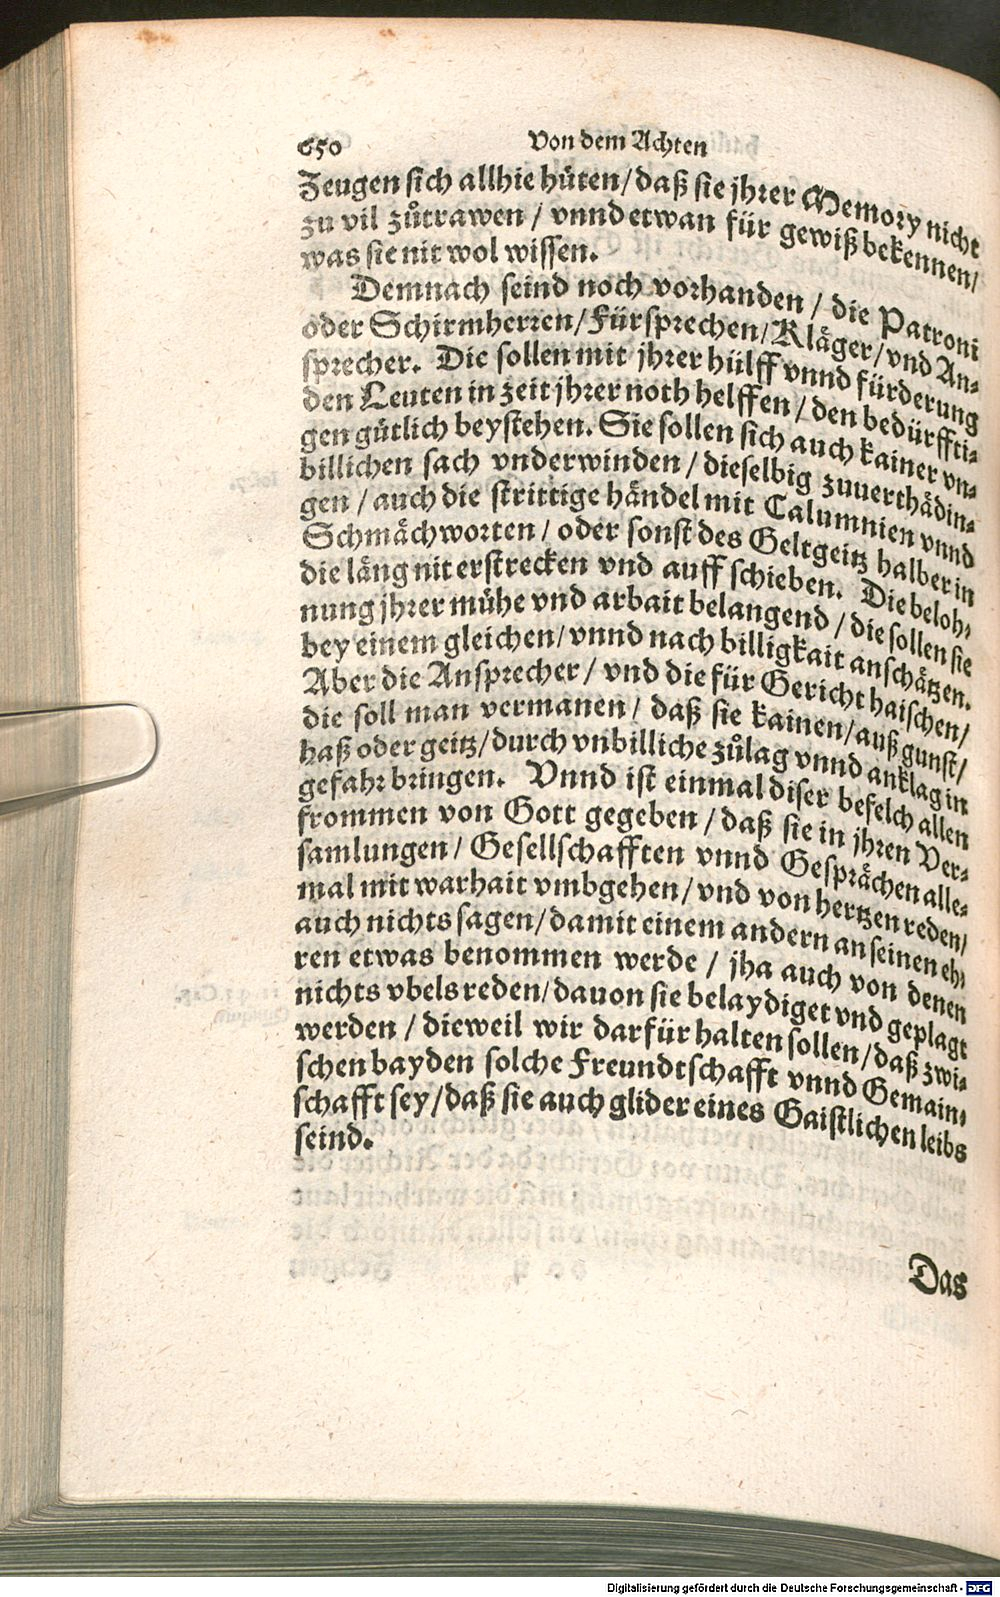 650 Von dem Achten
Zeugen sich allhie hüten/daß sie jhrer Memory nicht
zu vil zůtrawen / vnnd etwan für gewiß bekennen/
was sie nit wol wissen.
Demnach seind noch vorhanden / die Patroni
oder Schirmherren/Fürsprechen/Kläger/vnd An-
sprecher. Die sollen mit jhrer hülff vnnd fürderung
den Leuten in zeit jhrer noth helffen / den bedürffti-
gen gütlich beystehen. Sie sollen sich auch kainer vn-
billichen sach vnderwinden / dieselbig zuuerthädin-
gen / auch die strittige händel mit Calumnien vnnd
Schmächworten / oder sonst des Geltgeitz halber in
die läng nit erstrecken vnd auff schieben. Die beloh-
nung jhrer mühe vnd arbait belangend / die sollen sie
bey einem gleichen/vnnd nach billigkait anschätzen.
Aber die Ansprecher / vnd die für Gericht haischen/
die soll man vermanen / daß sie kainen/auß gunst/
haß oder geitz/durch vnbilliche zůlag vnnd anklag in
gefahr bringen. Vnnd ist einmal diser befelch allen
frommen von Gott gegeben / daß sie in jhren Ver-
samlungen / Gesellschafften vnnd Gesprächen alle-
mal mit warhait vmbgehen/vnd von hertzen reden/
auch nichts sagen/damit einem andern an seinen eh-
ren etwas benommen werde / jha auch von denen
nichts vbels reden/dauon sie belaydiget vnd geplagt
werden / dieweil wir darfür halten sollen/daß zwi-
schen bayden solche Freundtschafft vnnd Gemain-
schafft sey/daß sie auch glider eines Gaistlichen leibs
seind.
Das
Digitalisierung gefördert durch die Deutsche Forschungsgemeinschaft - DFG